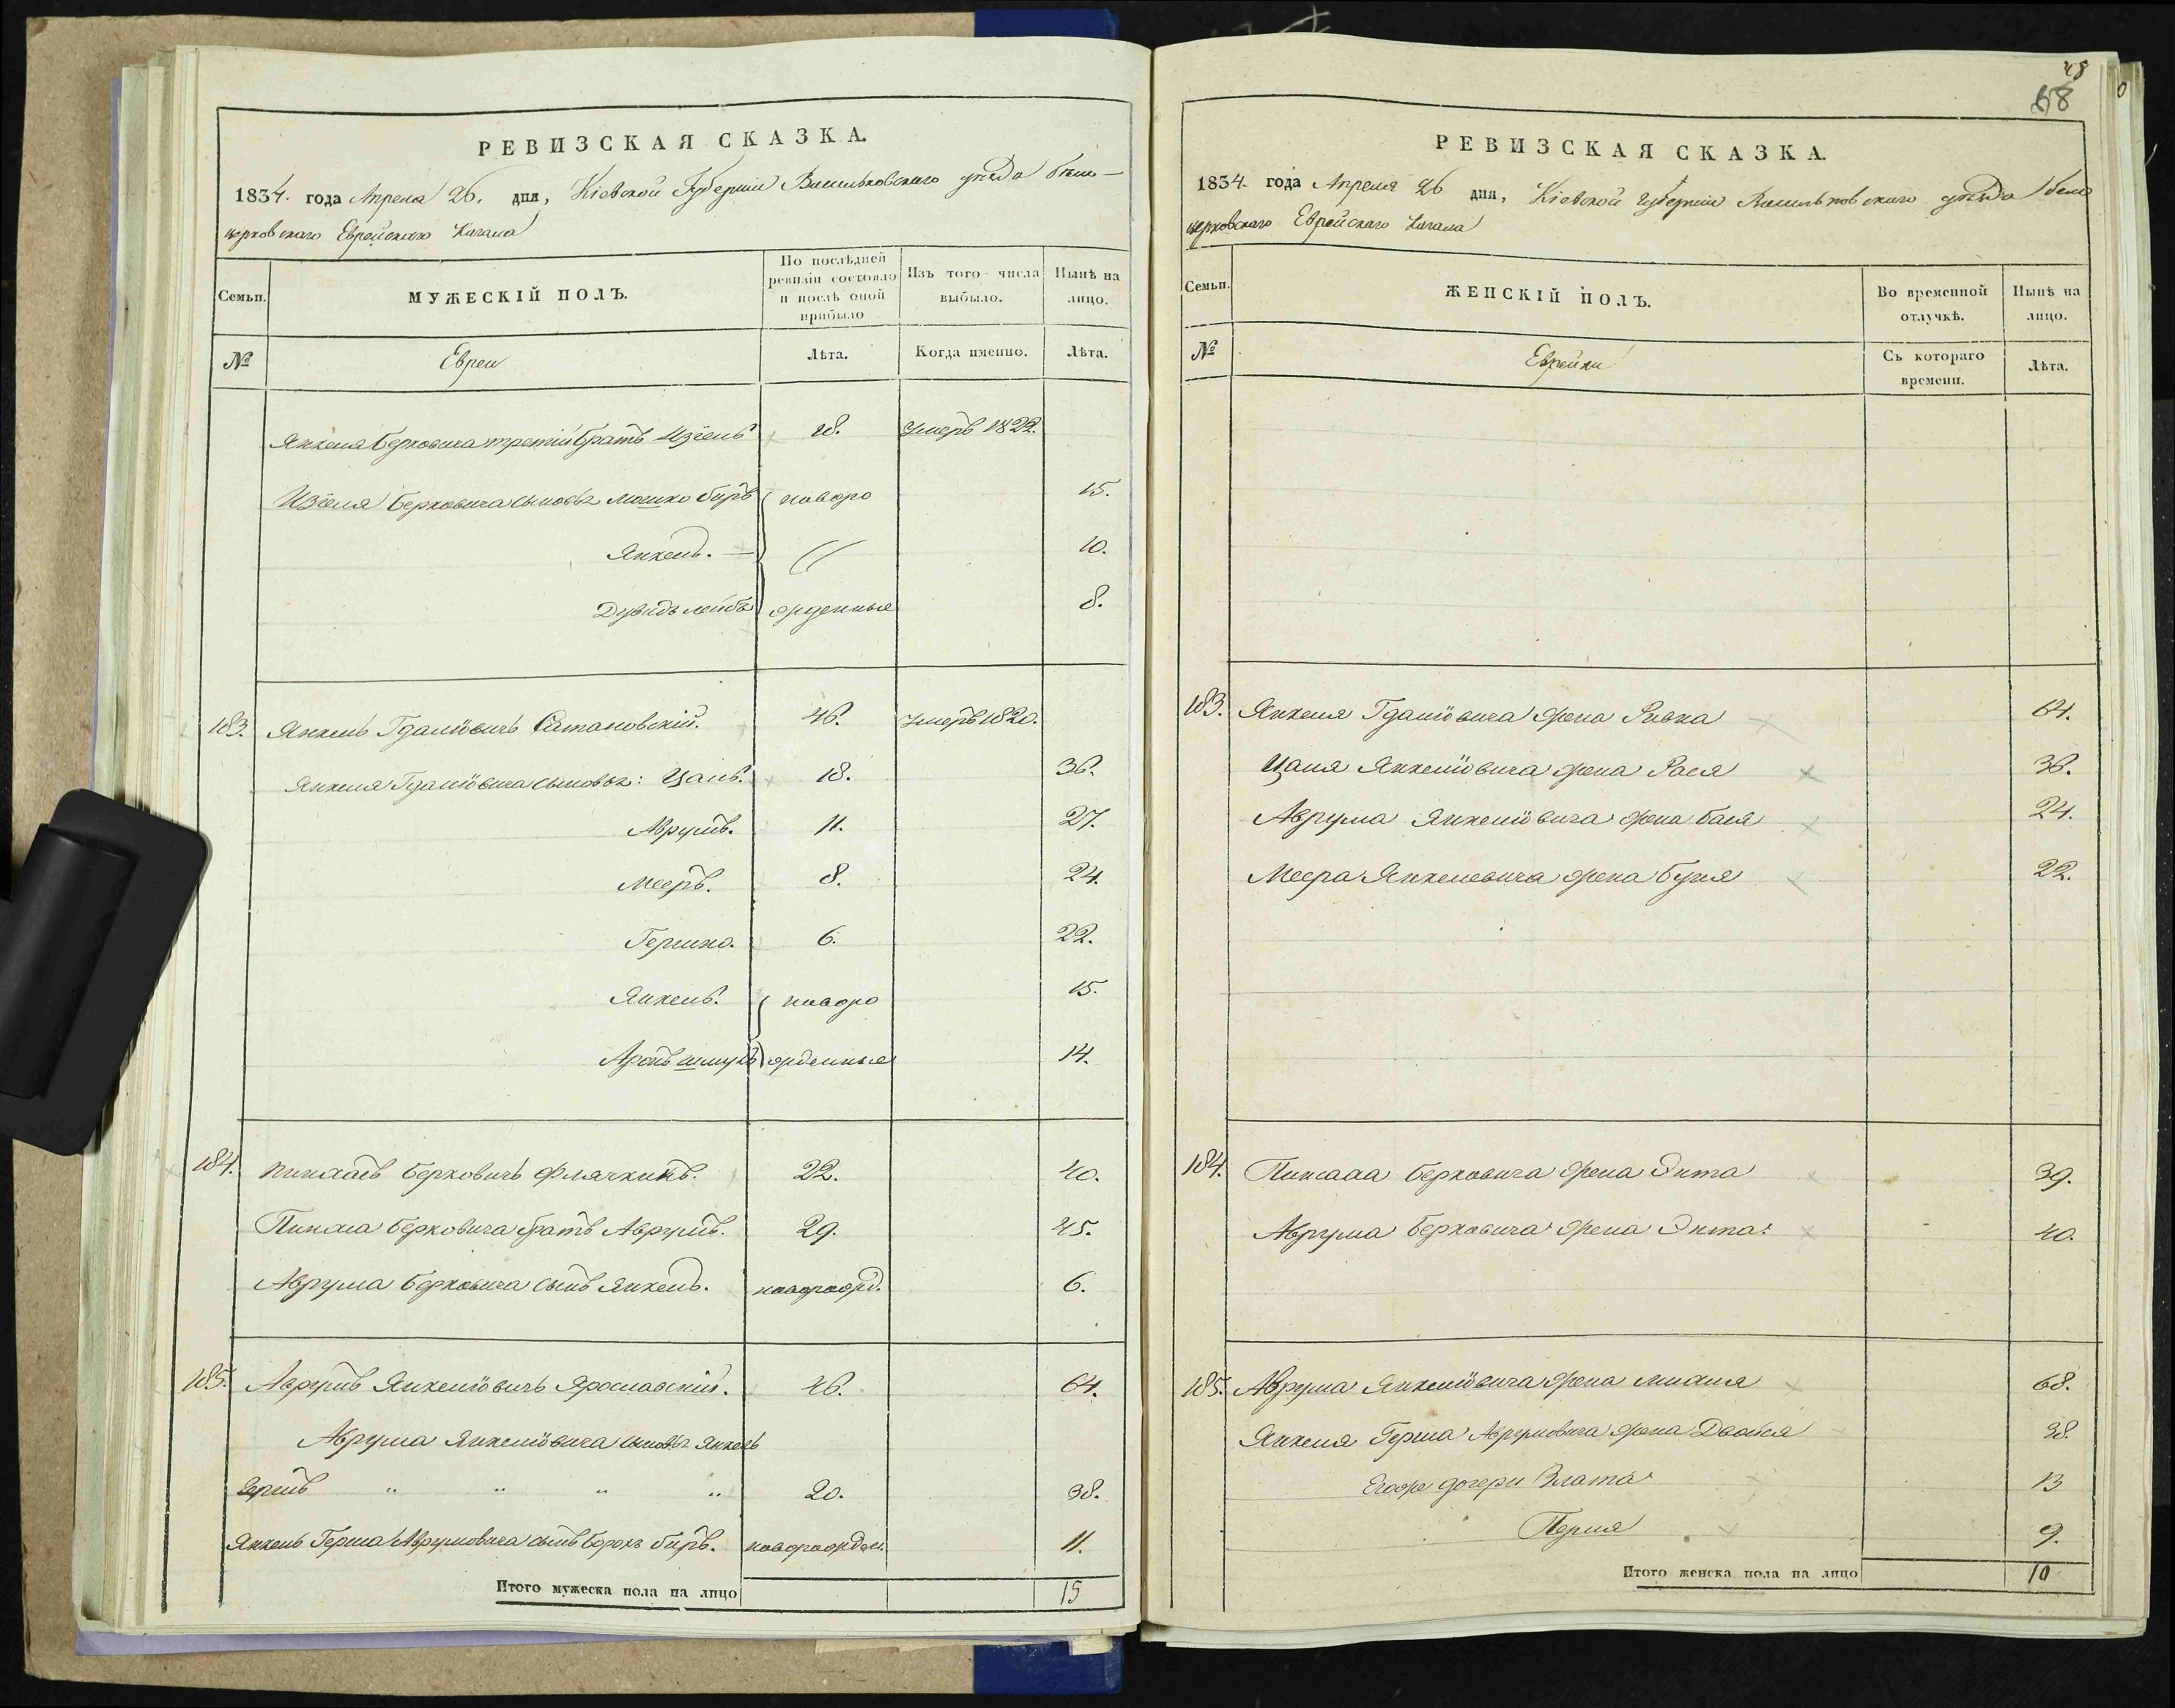 РЕВИЗСКАЯ СКАЗКА.
1834. года Апреля 26. дня, Кіевской Губерніи Васильковскаго уѣзда бѣло-
церковскаго Еврейскаго Кагала
Семьи.
МУЖЕСКІЙ ПОЛЪ.
По послѣдней ревизіи состояло и послѣ оной прибыло
Изъ того числа выбыло.
Нынѣ на лицо.
№
Евреи
Лѣта.
Когда именно.
Лѣта.
Янкеля Берковича третій братъ Изѐель 18. Умеръ 1822.
Изѐеля Берковича сыновья Мошко Беръ новоро 15.
Янкель. — // 10.
Дувидъ лейба жденные 8.
183. Янкель Гдалiовичъ Сатановскій. 46. Умеръ 1820.
Янкеля Гдалiовича сыновья: Цаль. 18. 36.
Аврумъ. 11. 27.
Мееръ. 8. 24.
Гершко. 6. 22.
Янкель. новоро 15.
Аронъ шмуль жденные 14.
184. Пинхасъ Берковичъ Флячкинъ. 22. 40.
Пинхаса Берковича братъ Аврумъ. 29. 45.
Аврума Берковича сынъ Янкель. новорожд. 6.
185. Аврумъ Янкелiовичъ Ярославскій. 46. 64.
Аврума Янкелiовича сыновья Янкель
Гершъ " " " " 20. 38.
Янкель Герша Аврумовича сынъ Борохъ Беръ. новорожден. 11.
Итого мужеска пола на лицо 15
48
68
РЕВИЗСКАЯ СКАЗКА.
1834. года Апреля 26 дня, Кіевской Губерніи Васильковскаго уѣзда бело
церковскаго Еврейскаго Кагала
Семьи.
ЖЕНСКІЙ ПОЛЪ.
Во временной отлучкѣ.
Нынѣ на лицо.
№
Еврейки
Съ котораго времени.
Лѣта.
183. Янкеля Гдалiовича жена Ривка 64.
Цаля Янкелiовича жена Рася 36.
Аврума Янкелiовича жена Бася 24.
Меера Янкелевича жена Буня 22.
184. Пинхаса Берковича жена Энта 39.
Аврума Берковича жена Энта 40.
185. Аврума Янкелiовича жена 68.
Янкеля Герша Аврумовича жена Двойся 38.
Егоже дочери Злата 13
Перля 9.
Итого женска пола на лицо 10